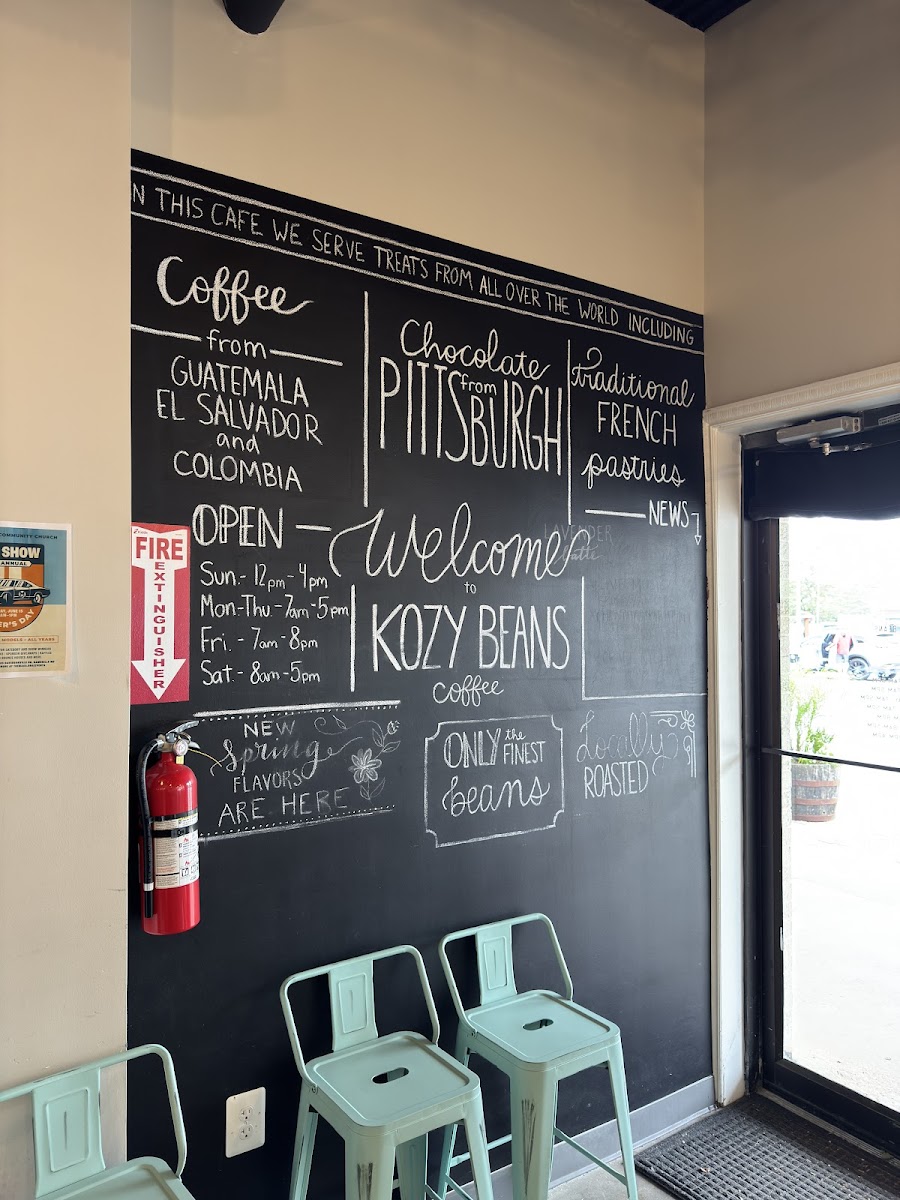 N THIS CAFE WE SERVE TREATS FROM ALL OVER THE WORLD INCLUDING
Coffee
from
GUATEMALA
EL SALVADOR
and
COLOMBIA
Chocolate
from
PITTSBURGH
traditional
FRENCH
pastries
NEWS
LAVENDER
latte
OPEN
Sun.- 12pm-4pm
Mon-Thu-7am-5pm
Fri. - 7am-8pm
Sat.- 8am-5pm
Welcome
to
KOZY BEANS
coffee
NEW
Spring
FLAVORS
ARE HERE
ONLY the FINEST
beans
Locally
ROASTED
FIRE
EXTINGUISHER
COMMUNITY CHURCH
SHOW
ANNUAL
ER'S DAY
MODELS - ALL YEARS